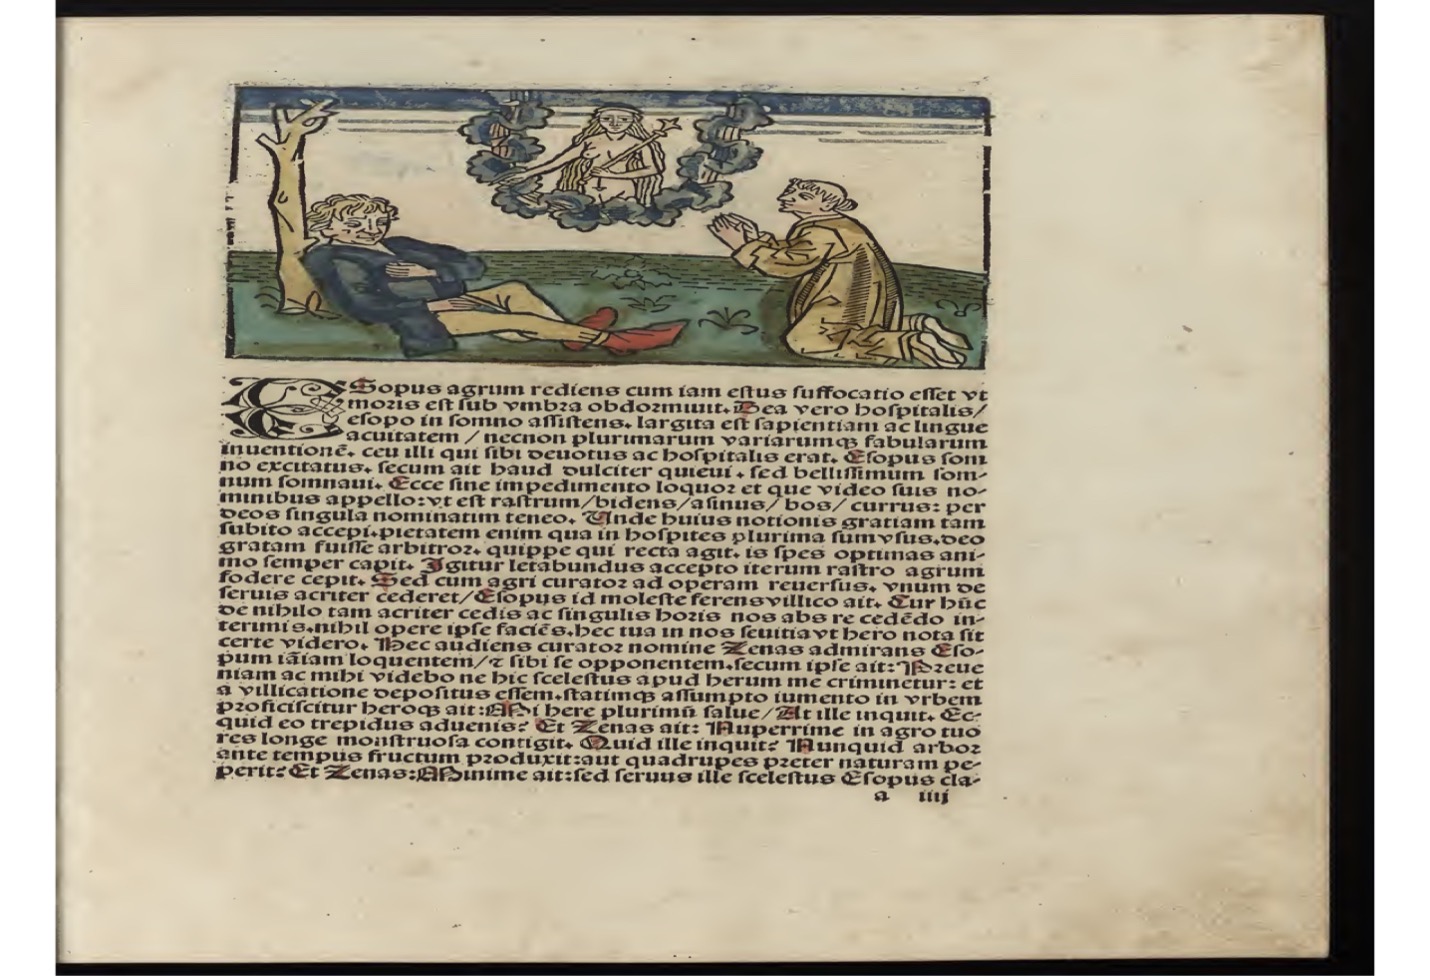 ESopus agrum rediens cum iam estus suffocatio esset vt
moris est sub vmbra obdormiuit. Dea vero hospitalis/
esopo in somno assistens. largita est sapientiam ac lingue
acuitatem / necnon plurimarum variarumqꝫ fabularum
inuentionē. ceu illi qui sibi deuotus ac hospitalis erat. Esopus som
no excitatus. secum ait haud dulciter quieui. sed bellissimum som-
num somnaui. Ecce sine impedimento loquor et que video suis no-
minibus appello: vt est rastrum/bidens/asinus/ bos/ currus: per
deos singula nominatim teneo. Unde huius notionis gratiam tam
subito accepi. pietatem enim qua in hospites plurima sum vsus. deo
gratam fuisse arbitror. quippe qui recta agit. is spes optimas ani-
mo semper capit. Igitur letabundus accepto iterum rastro agrum
fodere cepit. Sed cum agri curator ad operam reuersus. vnum de
seruis acriter cederet/ Esopus id moleste ferens villico ait. Cur hūc
de nihilo tam acriter cedis ac singulis horis nos abs re cedēdo in-
terimis. nihil opere ipse faciēs. hec tua in nos seuitia vt hero nota sit
certe videro. Hec audiens curator nomine Zenas admirans Eso-
pum iā iam loquentem/ ⁊ sibi se opponentem. secum ipse ait: Preue
niam ac mihi videbo ne hic scelestus apud herum me criminetur: et
a villicatione depositus essem. statimqꝫ assumpto iumento in vrbem
proficiscitur heroqꝫ ait: Mi here plurimū salue/ At ille inquit. Ec-
quid eo trepidus aduenis? Et Zenas ait: Nuperrime in agro tuo
res longe monstruosa contigit. Quid ille inquit? Nunquid arbor
ante tempus fructum produxit: aut quadrupes preter naturam pe-
perit? Et Zenas: Minime ait: sed seruus ille scelestus Esopus cla-
a iiij